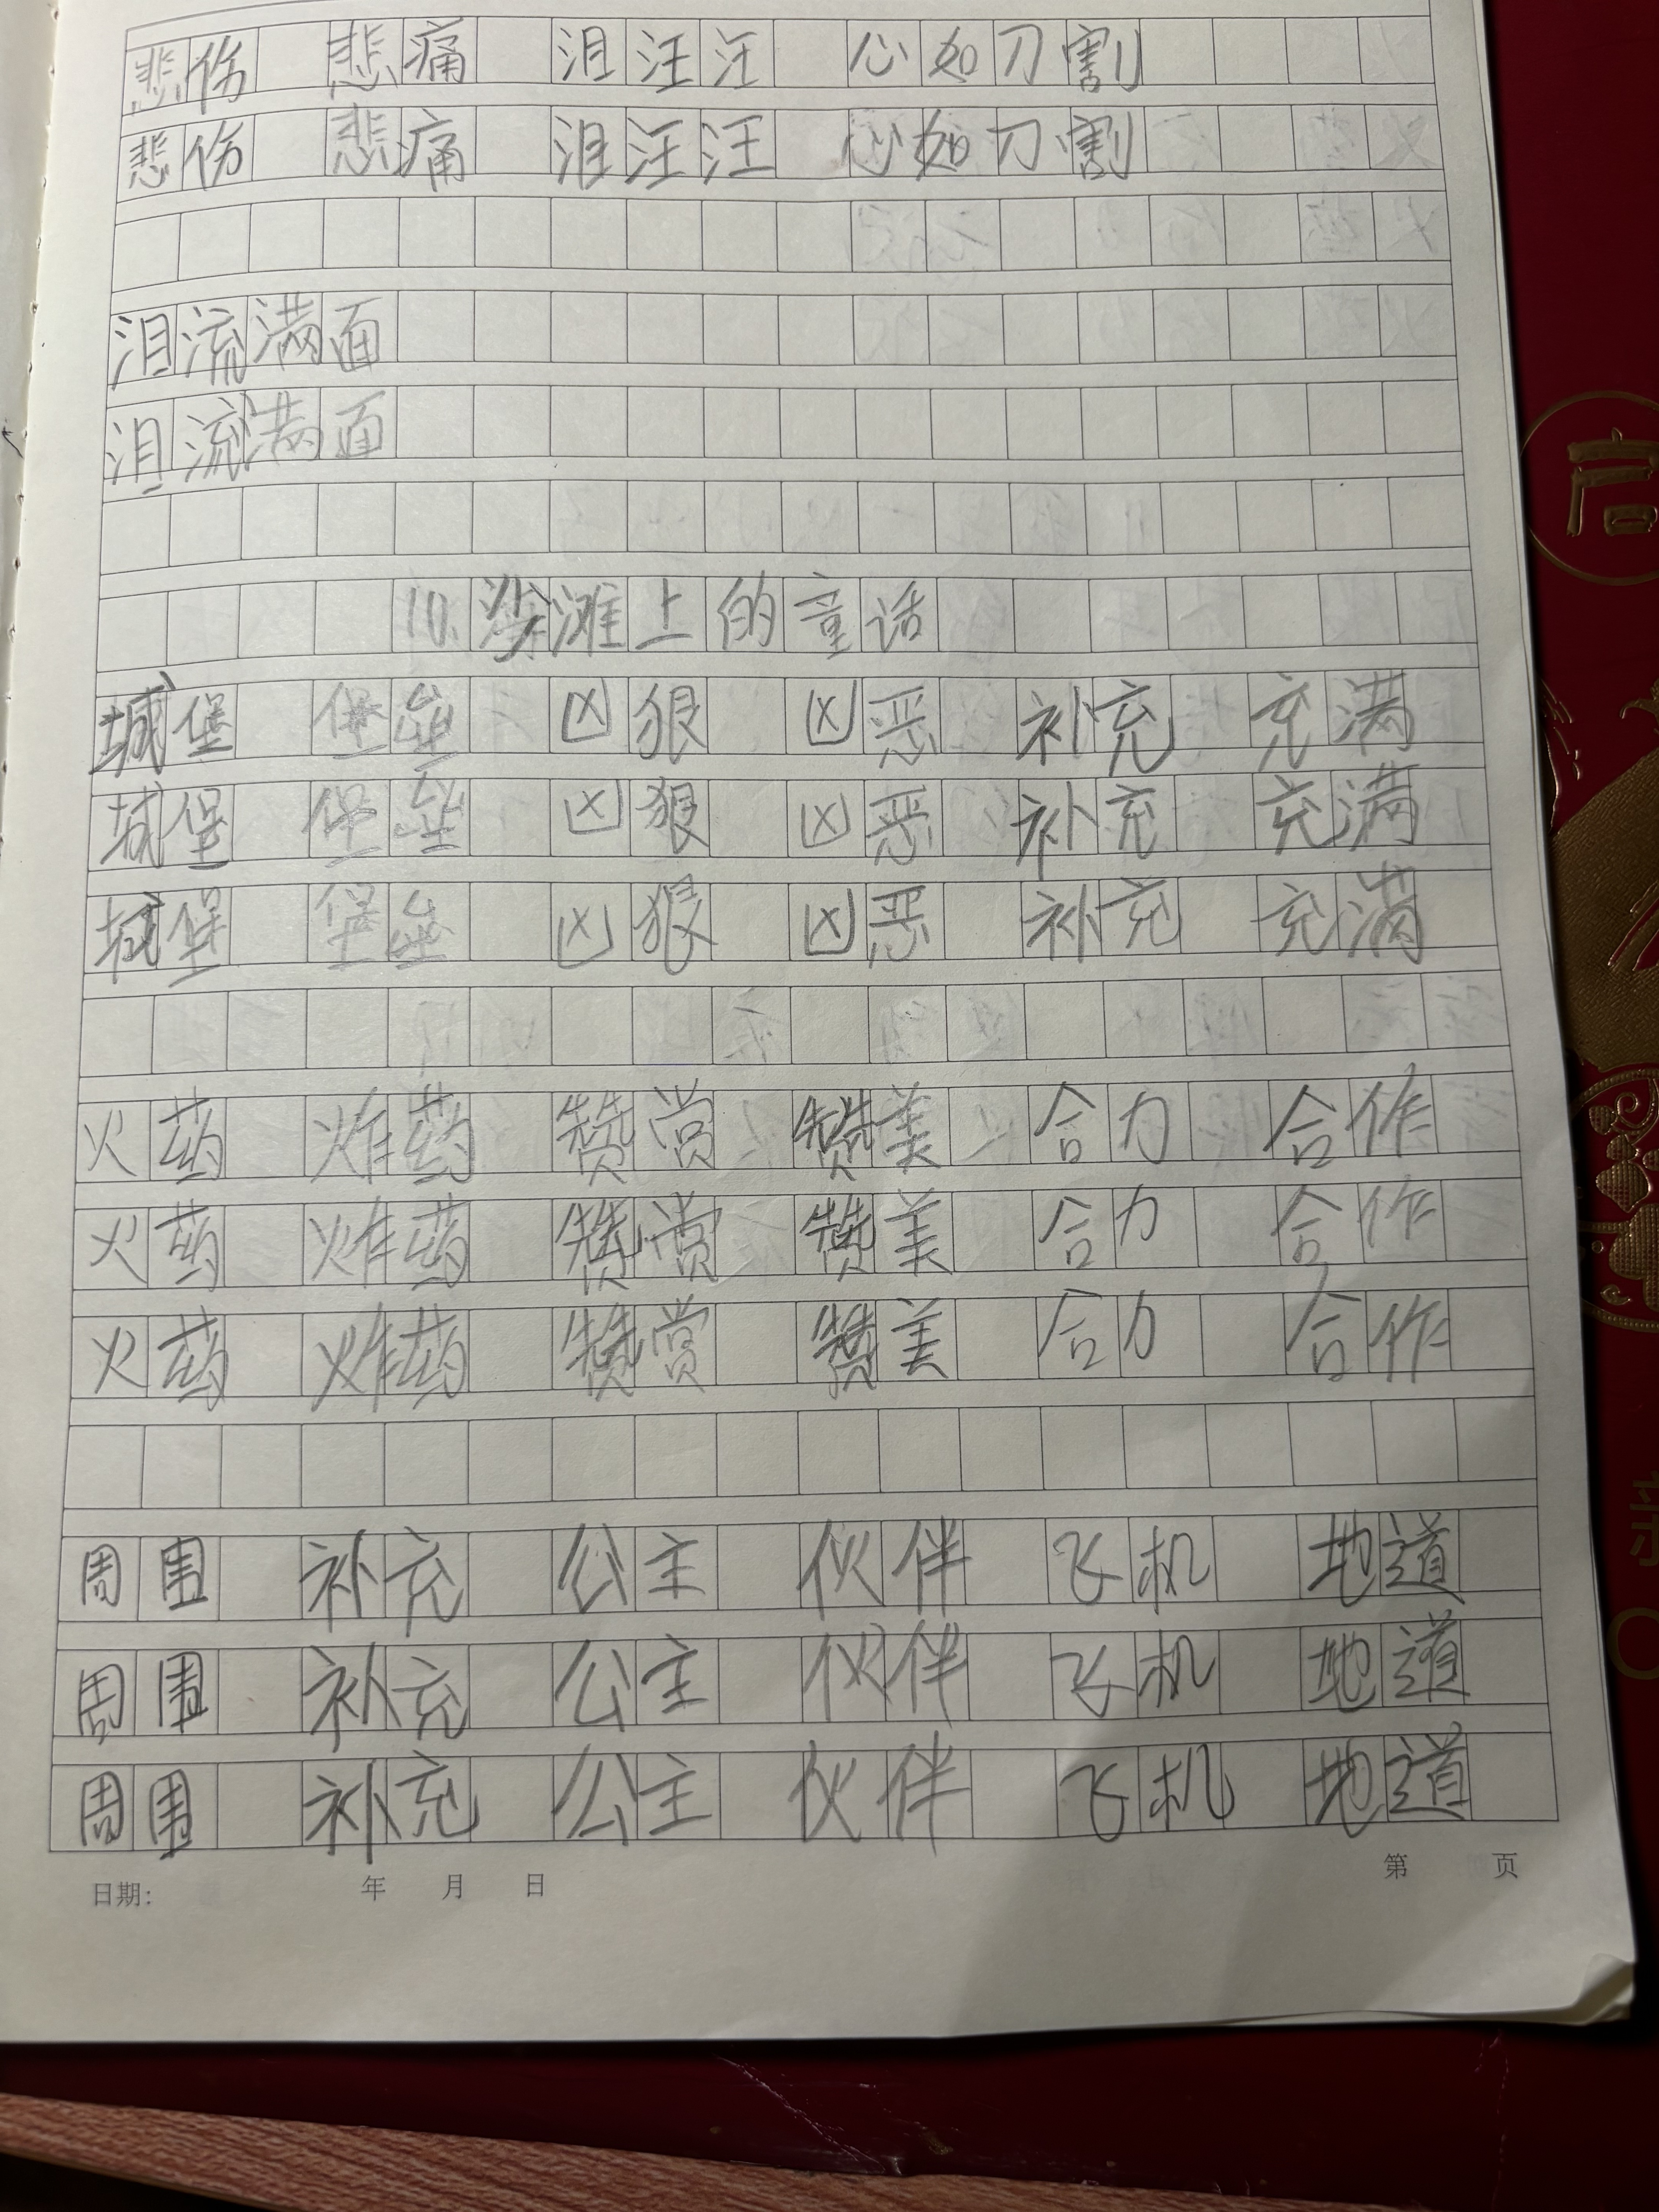 悲伤 悲痛 泪汪汪 心如刀割
悲伤 悲痛 泪汪汪 心如刀割
泪流满面
泪流满面
10.沙滩上的童话
城堡 堡垒 凶狠 凶恶 补充 充满
城堡 堡垒 凶狠 凶恶 补充 充满
城堡 堡垒 凶狠 凶恶 补充 充满
火药 炸药 赞赏 赞美 合力 合作
火药 炸药 赞赏 赞美 合力 合作
火药 炸药 赞赏 赞美 合力 合作
周围 补充 公主 伙伴 飞机 地道
周围 补充 公主 伙伴 飞机 地道
周围 补充 公主 伙伴 飞机 地道
日期: 年 月 日 第 页